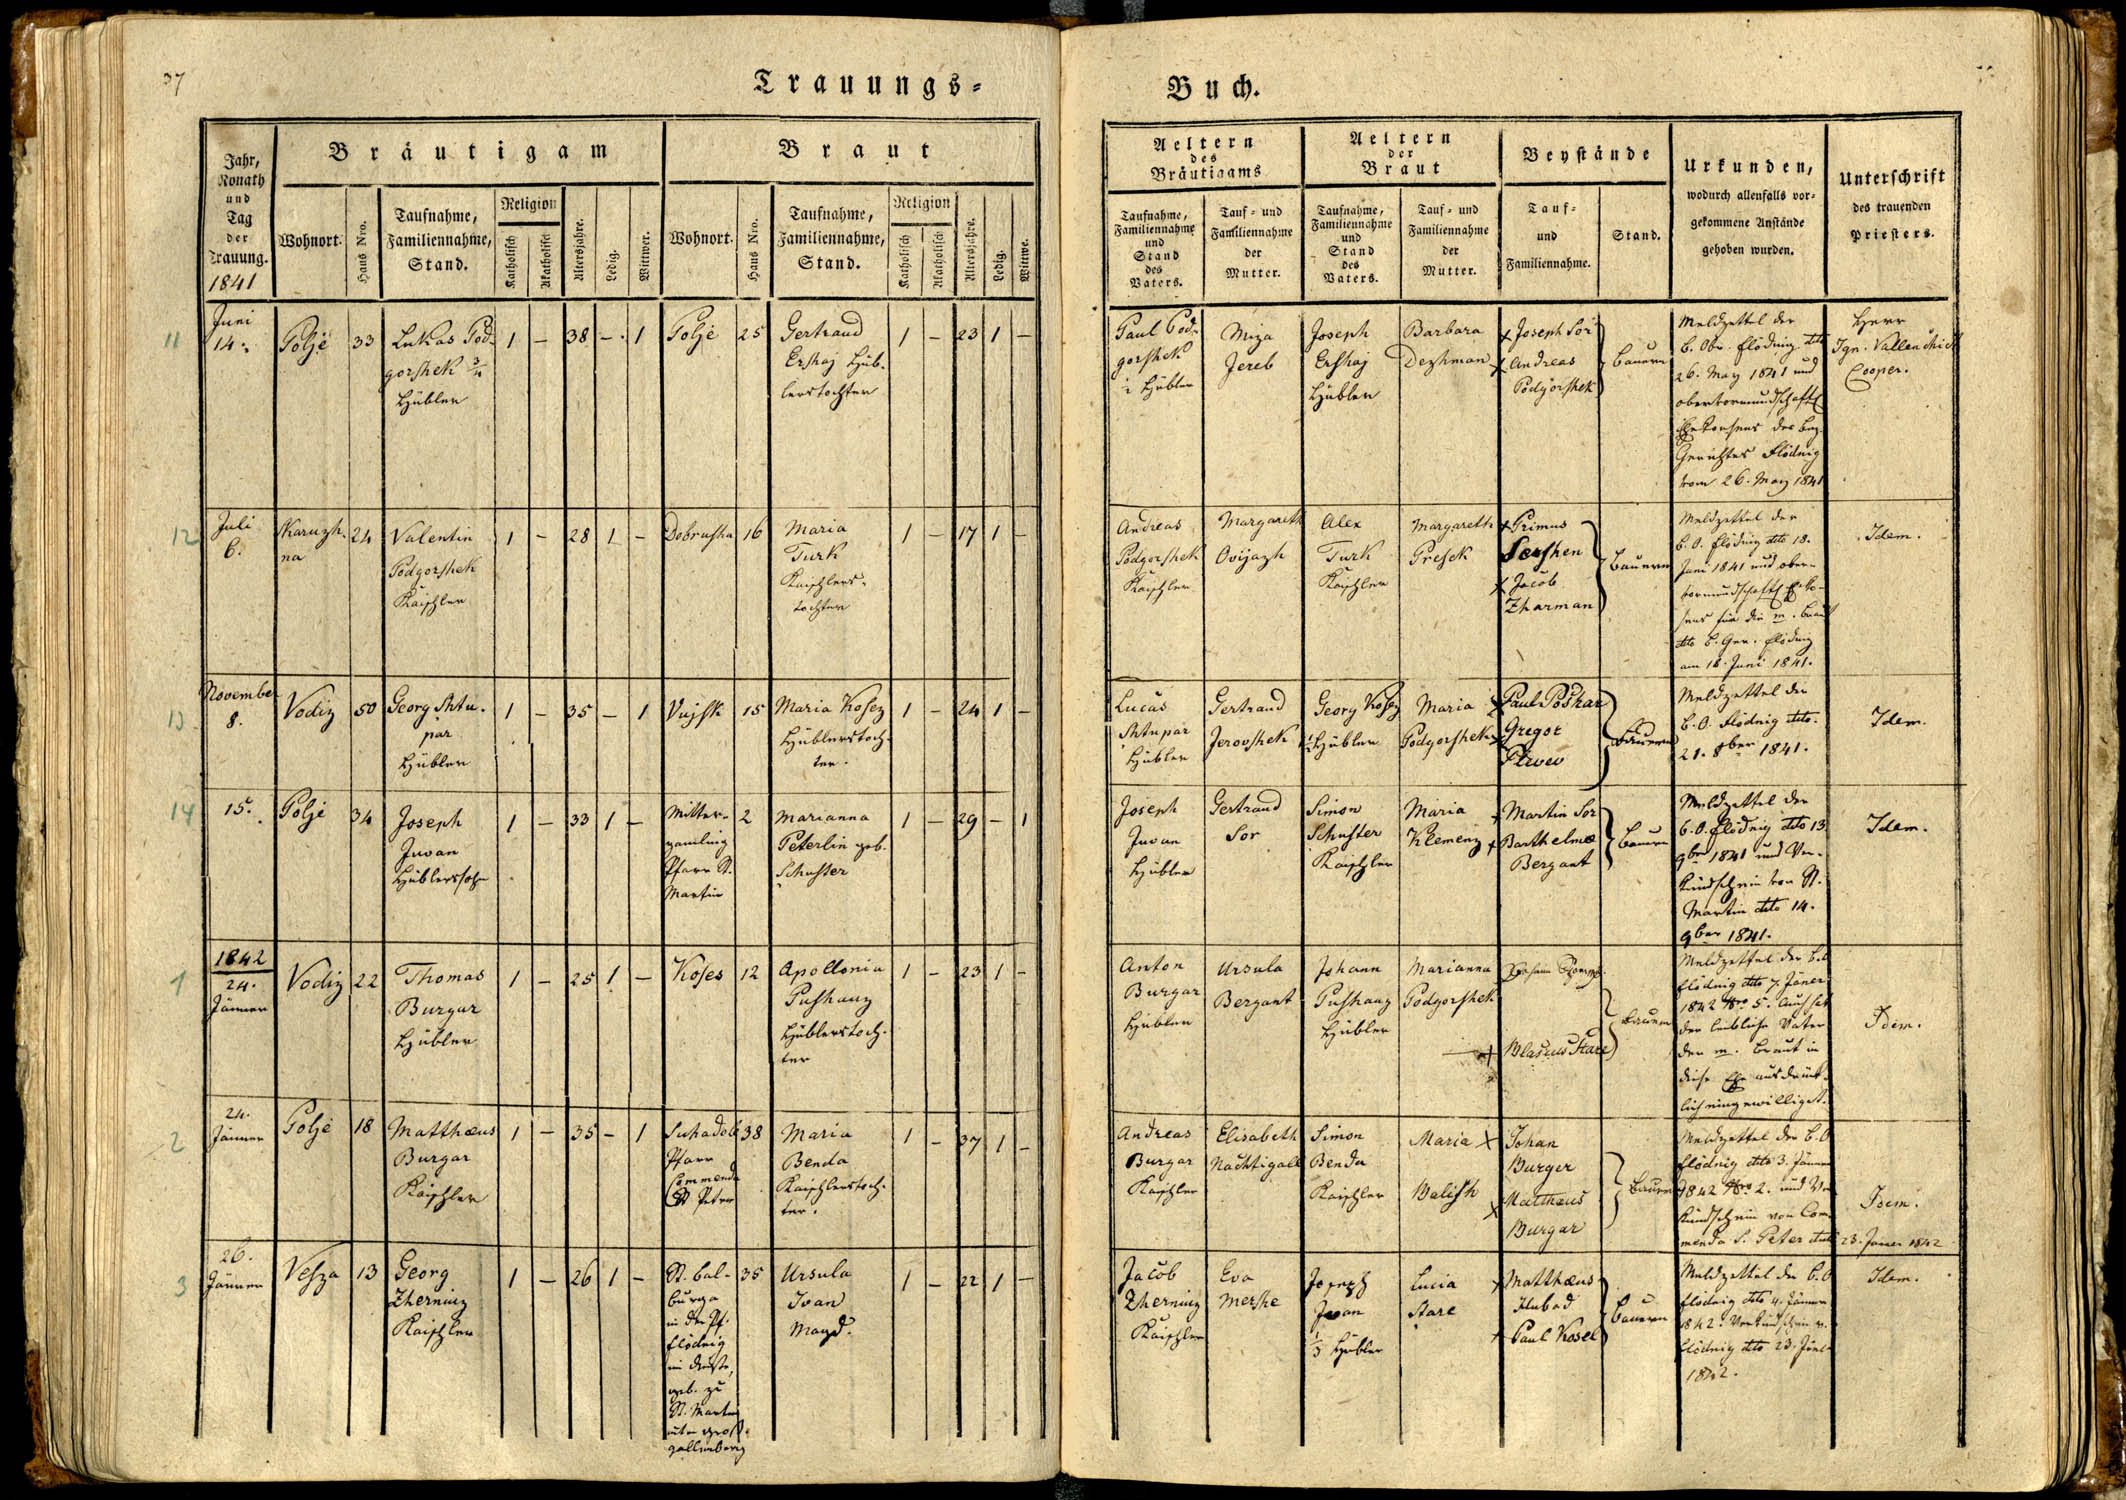 37
Trauungs=
Jahr,
Monath
und
Tag
der
Trauung.
1841
Bräutigam
Wohnort.
Haus Nro.
Taufnahme,
Familiennahme,
Stand.
Religion
Katholisch
Akatholisch
Altersjahre.
Ledig.
Wittwer.
Braut
Wohnort.
Haus Nro.
Taufnahme,
Familiennahme,
Stand.
Religion
Katholisch
Akatholisch
Altersjahre.
Ledig.
Wittwe.
11
Juni
14.
Polje
33
Lukas Pod-
gorshek 3/4
Hübler
1 – 38 – 1
Polje
25
Gertraud
Ershaj Hüb-
lerstochter
1 – 23 1 –
12
Juli
6.
Skaruzh-
na
24
Valentin
Podgorshek
Kaischler
1 – 28 1 –
Dobrusha
16
Maria
Turk
Kaischlers-
tochter
1 – 17 1 –
13
November
8.
Vodiz
50
Georg Shtu-
par
Hübler
1 – 35 – 1
Vujsk
15
Maria Kosez
Hüblerstoch-
ter.
1 – 24 1 –
14
15.
Polje
34
Joseph
Juvan
Hüblerssohn
1 – 33 1 –
Mitter-
gamling
Pfarr St.
Martin
2
Marianna
Peterlin geb.
Schuster
1 – 29 – 1
1842
1
24.
Jänner
Vodiz
22
Thomas
Burgar
Hübler
1 – 25 1 –
Koses
12
Apollonia
Pushauz
Hüblerstoch-
ter
1 – 23 1 –
2
24.
Jänner
Polje
18
Matthæus
Burgar
Kaischler
1 – 35 – 1
Suhadole
Pfarr
Commenda
St Peter
38
Maria
Benda
Kaischlerstoch-
ter.
1 – 37 1 –
3
26.
Jänner
Vesza
13
Georg
Zherniuz
Kaischler
1 – 26 1 –
St. Bal-
burga
in der Pf.
Flödnig
im Dienste,
geb. zu
St. Martin
unter groß-
gallenberg
35
Ursula
Ivan
Magd.
1 – 22 1 –
Buch.
Aeltern
des
Bräutigams
Taufnahme,
Familiennahme
und
Stand
des
Vaters.
Tauf= und
Familiennahme
der
Mutter.
Aeltern
der
Braut
Taufnahme,
Familiennahme
und
Stand
des
Vaters.
Tauf= und
Familiennahme
der
Mutter.
Beystände
Tauf=
und
Familiennahme.
Stand.
Urkunden,
wodurch allenfalls vor=
gekommene Anstände
gehoben wurden.
Unterschrift
des trauenden
Priesters.
Paul Pod-
gorshek
1/2 Hübler
Miza
Jereb
Joseph
Ershaj
Hübler
Barbara
Dezhman
x Joseph Sor
x Andreas
Podgorshek
Bauern
Meldzettel der
B. Obr. Flödnig dto
26. May 1841 und
obervormundschaftl
Ehekonsens des Bez.
Gerichtes Flödnig
vom 26. May 1841
Herr
Ign. Vallenchich
Cooper.
Andreas
Podgorshek
Kaischler
Margareth
Ovijazh
Alex
Turk
Kaischler
Margareth
Presek
x Primus
Sershen
x Jacob
Zharman
Bauern
Meldzettel der
B. O. Flödnig dto 18.
Juni 1841 und ober-
vormundschaftl Ehko-
sens für die m. Braut
dto B. Ger. Flödnig
am 18. Juni 1841.
Idem.
Lucas
Shtupar
Hübler
Gertraud
Jerovshek
Georg Kosez
1/2 Hübler
Maria
Podgorshek
x Paul Poshar
x Gregor
Bauern
Meldzettel der
B. O. Flödnig dto.
21. 8ber 1841.
Idem.
Joseph
Juvan
Hübler
Gertraud
Sor
Simon
Schuster
Kaischler
Maria
Klemenz
x Martin Sor
x Barthelmæ
Bergant
Bauern
Meldzettel der
B. O. Flödnig dto 13
9ber 1841 und Ver-
kündschein von St.
Martin dto 14.
9ber 1841.
Idem.
Anton
Burgar
Hübler
Ursula
Bergant
Johann
Pushauz
Hübler
Marianna
Podgorshek
x Blasius Stare
Bauern
Meldzettel der B. O
Flödnig dto 7. Jäner
1842 Nro 5. Auch hat
der leibliche Vater
der m. Braut in
diese Ehe ausdrück-
lich eingewilliget.
Idem.
Andreas
Burgar
Kaischler
Elisabeth
Nachtigall
Simon
Benda
Kaischler
Maria
Balish
x Johan
Burger
x Matthæus
Burgar
Bauern
Meldzettel der B. O
Flödnig dto 3. Jänner
1842 Nro 2. und Ver
kündschein von Com-
menda S. Peter dto
23. Janer 1842
Idem.
Jacob
Zherniuz
Kaischler
Eva
Mershe
Joseph
Juvan
1/3 Hübler
Lucia
Stare
x Matthæus
Hubad
x Paul Kosel
Bauern
Meldzettel der B. O
Flödnig dto 4. Jänner
1842. Verkündschein v.
Flödnig dto 23. Jän-
1842.
Idem.